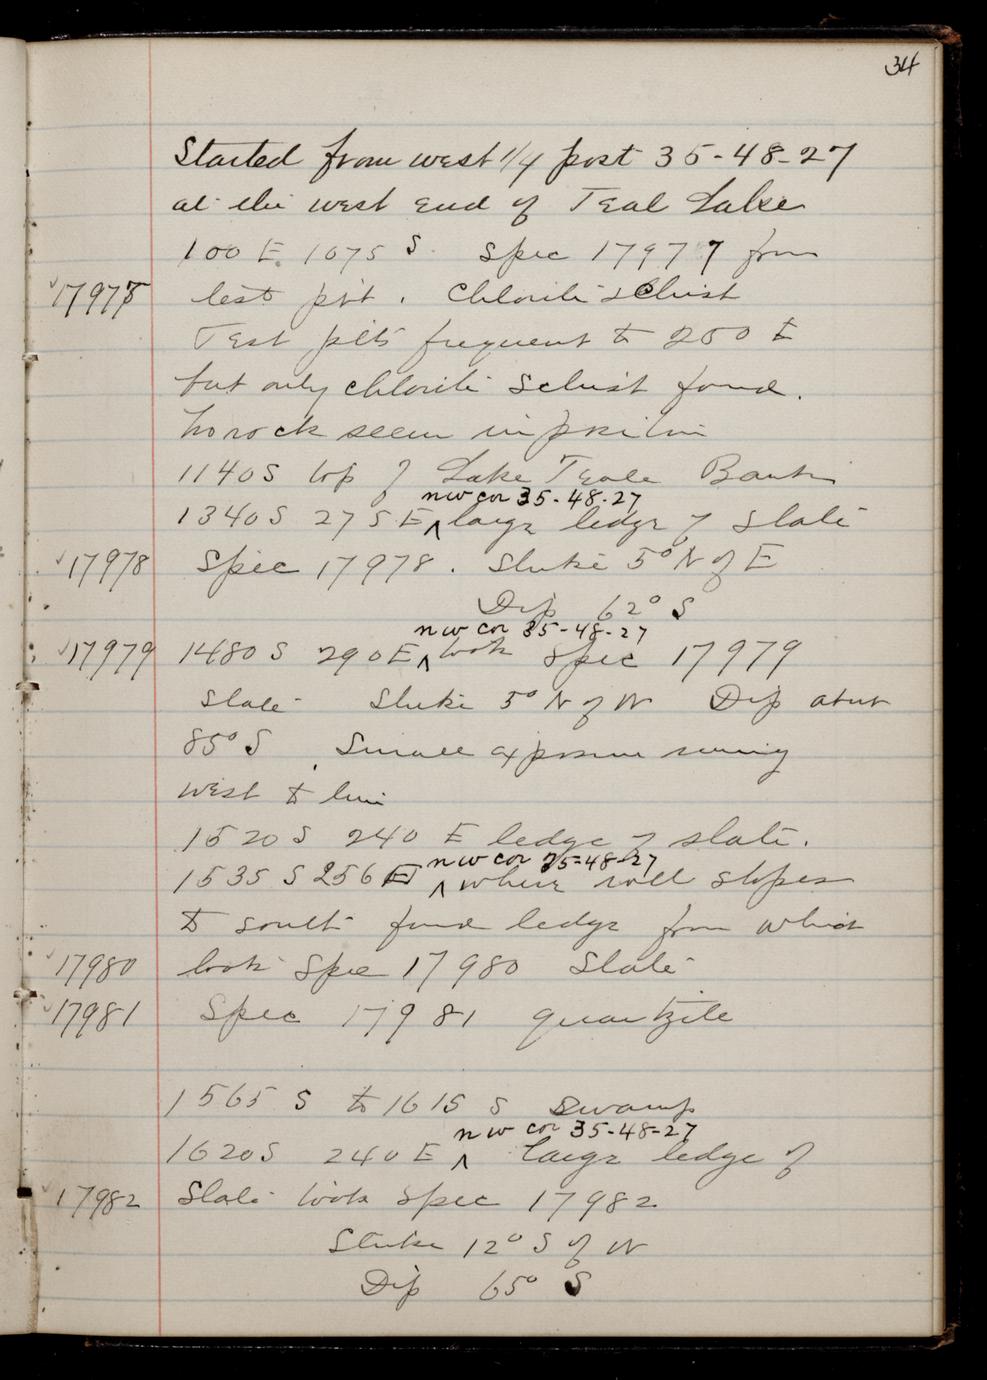 34
Started from west 1/4 post 35-48-27
at the west end of Teal Lake
100 E. 1075 S. Spec 17977 from
17977 test pit. Chlorite schist
Test pits frequent to 250 E
but only chlorite schist found.
No rock seen in position
1140 S top of Lake Teale Bank
nw cor 35-48-27
1340 S 275 E ^ large ledge of slate
17978 Spec 17978. Strike 5° N of E
Dip 62° S
nw cor 35-48-27
17979 1480 S 290 E ^ took Spec 17979
Slate Strike 5° N of W Dip about
85° S. Small exposure running
west to line
1520 S 240 E ledge of slate.
nw cor 35-48-27
1535 S 256 E ^ where roll slopes
to south found ledge from which
17980 took Spec 17980 Slate
17981 Spec 17981 quartzite
1565 S to 1615 S Swamp
nw cor 35-48-27
1620 S 240 E ^ Large ledge of
17982 Slate took Spec 17982
Strike 12° S of W
Dip 65° S